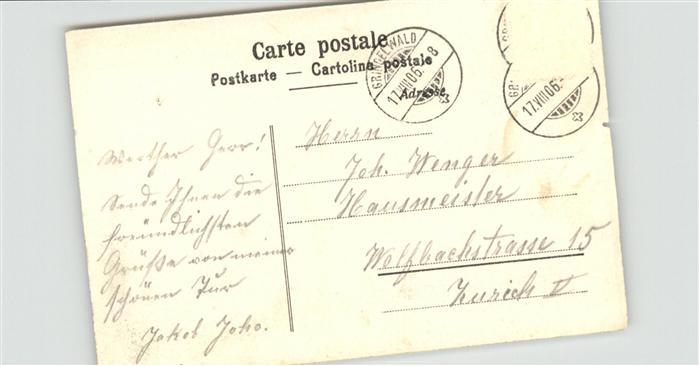 Carte postale
Postkarte — Cartolina postale
Adresse.
GRINDELWALD
17.VIII.06. 8
GRI
17.VIII.06.
Werther Herr!
Sende Ihnen die
freündlichsten
Grüße von meiner
schönen Tur
Jakob Joho.
Herrn
Joh. Wenger
Hausmeister
Wolfbachstrasse 15
Zürich V